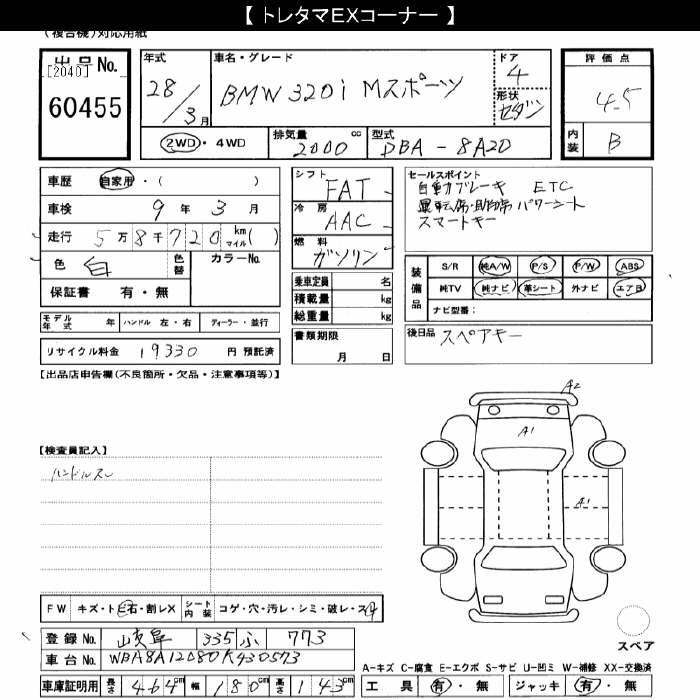 【 トレタマEXコーナー 】
(複合機)対応用紙
出品No.
[2040]
60455
年式
28/3月
車名・グレード
BMW 320i Mスポーツ
ドア
4
形状
セダン
評価点
4.5
内装
B
2WD・4WD
排気量
2000 cc
型式
DBA - 8A20
車歴 自家用・( )
車検 9年 3月
走行 5万8千720 km マイル( )
色 白 色替 カラーNo.
保証書 有・無
シフト
FAT
冷房
AAC
燃料
ガソリン
乗車定員 名
積載量 kg
総重量 kg
書類期限
月 日
セールスポイント
自動ブレーキ ETC
運転席・助手席パワーシート
スマートキー
装備品
S/R 純A/W P/S P/W ABS
純TV 純ナビ 革シート 外ナビ エアB
ナビ型番:
モデル年式 年 ハンドル 左・右 ディーラー・並行
リサイクル料金 19330 円 預託済
後日品 スペアキー
【出品店申告欄(不良箇所・欠品・注意事項等)】
【検査員記入】
ハンドルスレ
A2
A1
A1
FW キズ・トビ石・割レX シート内装 コゲ・穴・汚レ・シミ・破レ・スレ
登録No. 岐阜 335 ふ 773
車台No. WBA8A12080K430573
車庫証明用 長さ 464cm 幅 180cm 高さ 143cm
スペア
A-キズ C-腐食 E-エクボ S-サビ U-凹ミ W-補修 XX-交換済
工具 有・無 ジャッキ 有・無